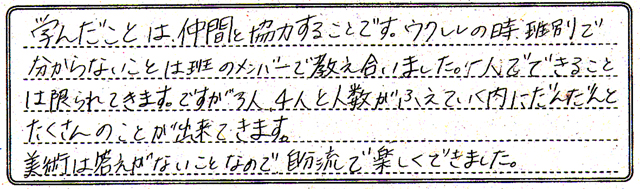 学んだことは、仲間と協力することです。ウクレレの時、班別で
分からないことは班のメンバーで教え合いました。1人でできること
は限られてきます。ですが3人、4人と人数がふえていく内にだんだんと
たくさんのことが出来てきます。
美術は答えがないことなので自分流で楽しくできました。